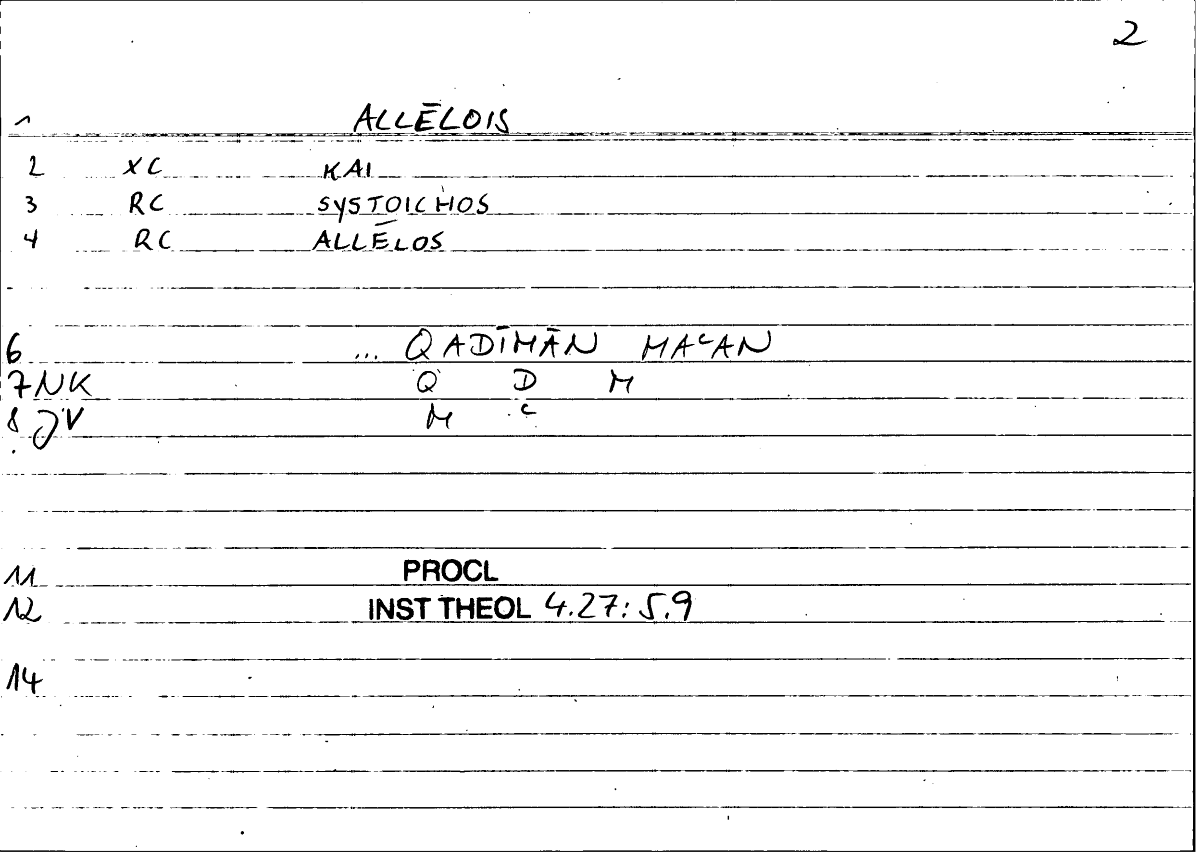 2
1 ALLĒLOIS
2 XC KAI
3 RC SYSTOICHOS
4 RC ALLĒLOS
6 ... QADĪMĀN MAʿAN
7 NK Q D M
8 JV M ʿ
11 PROCL
12 INST THEOL 4.27: 5.9
14